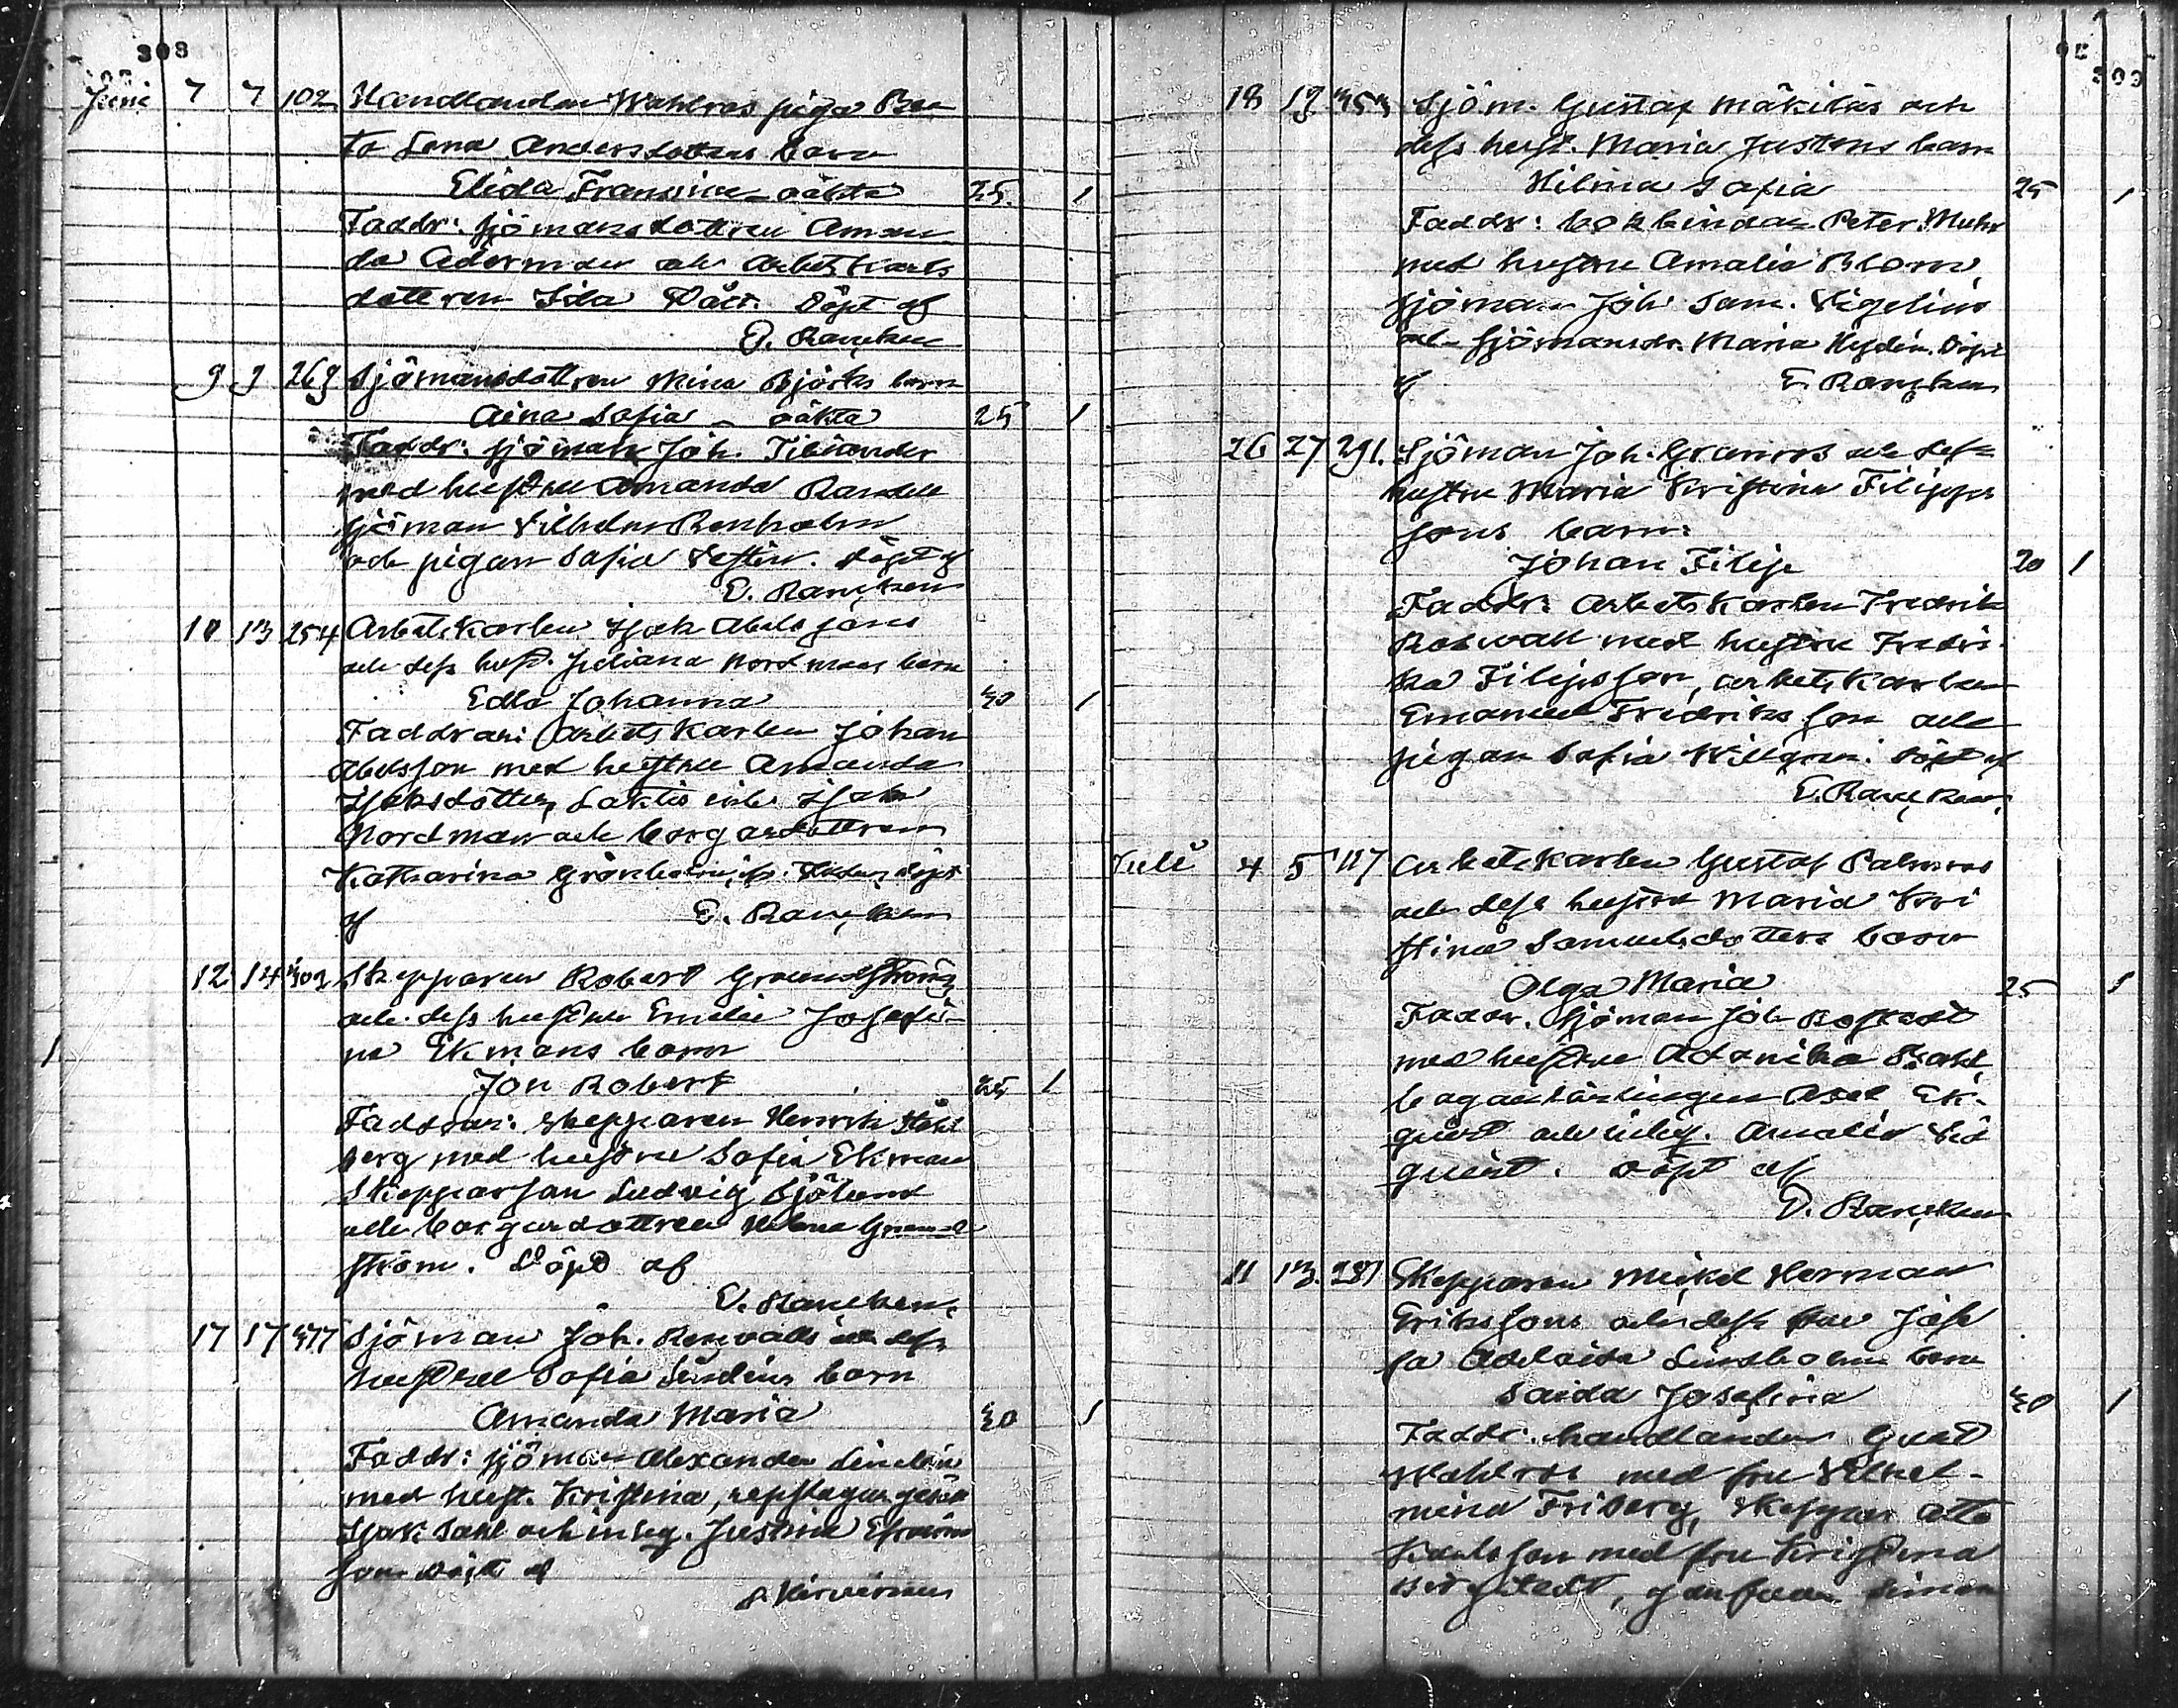 308
Juni 7 7 102 Handlanden Wahlroos piga Bea
ta Lena Andersdotters barn
Elida Fransiska oäkta 25. 1
Faddr: sjömansdottren Aman
da Aderman och Arbetskarls
dottren Ida Döpt af
E. Rancken
9 9 269 Sjömansdottren Mina Björks barn
Aina Sofia - oäkta 25 1
Faddr: sjöman Joh. Tiliander
med hustru Amanda
sjöman Vilhelm Renholm
och pigan Sofia Vestlin. Döpt af
E. Rancken
10 13 254 Arbetskarlen Isak Abelssons
och dess hust. Juliana Nordmans barn
Edla Johanna 30 1
Faddrar: Arbetskarlen Johan
Abelsson med hustru Amanda
Isaksdotter, Isak
Nordman och borgaredottren
Katharina Grönholm, Döpt
af E. Rancken
12 14 302 Skepparen Robert Grundström
och dess hustru Emelie Josefi-
na Ekmans barn
Jon Robert 25 1
Faddrar: skepparen Henrik Ståhl
berg med hustru Sofia Ekman
Skepparson Ludvig Sjölund
och borgaredottren Helena Grund
ström. Döpt af
E. Rancken.
17 17 377 Sjöman Joh. Rosvalls och dess
hustru Sofia Lindéns barn
Amanda Maria 30 1
Faddr: sjöman Alexander Lindén
med hust. Kristina, repslagaregesäll
Isak Dahl och inhy. Justina Efraims
son döpt af
Hirvinen
309
18 19 353 Sjöm. Gustaf Mäkiläs och
dess hust. Maria Justens barn
Hilma Sofia 25 1
Faddr: bokbindar Peter Muhr
med hustru Amalia Blom,
sjöman Joh. Sam. Vigelius
och sjömansdr. Maria Hydén. Döpt
af E. Rancken
26 27 291. Sjöman Joh. Granroos och dess
hustru Maria Kristina Filipps
sons barn:
Johan Filip 20 1
Faddr: Arbetskarlen Fredrik
Rosvall med hustru Fredri-
ka Filipsson, arbetskarlen
Emanuel Fredriksson och
pigan Sofia Willgren. Döpt af
E. Rancken.
Juli 4 5 117 Arbetskarlen Gustaf Palmroos
och dess hustru Maria Kri
stina Samuelsdotters barn
Olga Maria 25 1
Faddr. Sjöman Joh
med hustru
bagarlärlingen Axel Ek-
qvist och inhy. Amalia
qvist. Döpt af
E. Rancken
11 13. 281 Skepparen Mickel Herman
Erikssons och dess fru Jose
fa Adelaida Lindholms barn
Saida Josefina 30 1
Faddr. handlanden Gust
Wahlroos med fru Vilhel-
mina Friberg, skeppar Otto
Karlsson med fru Kristina
Bergstedt, Simon